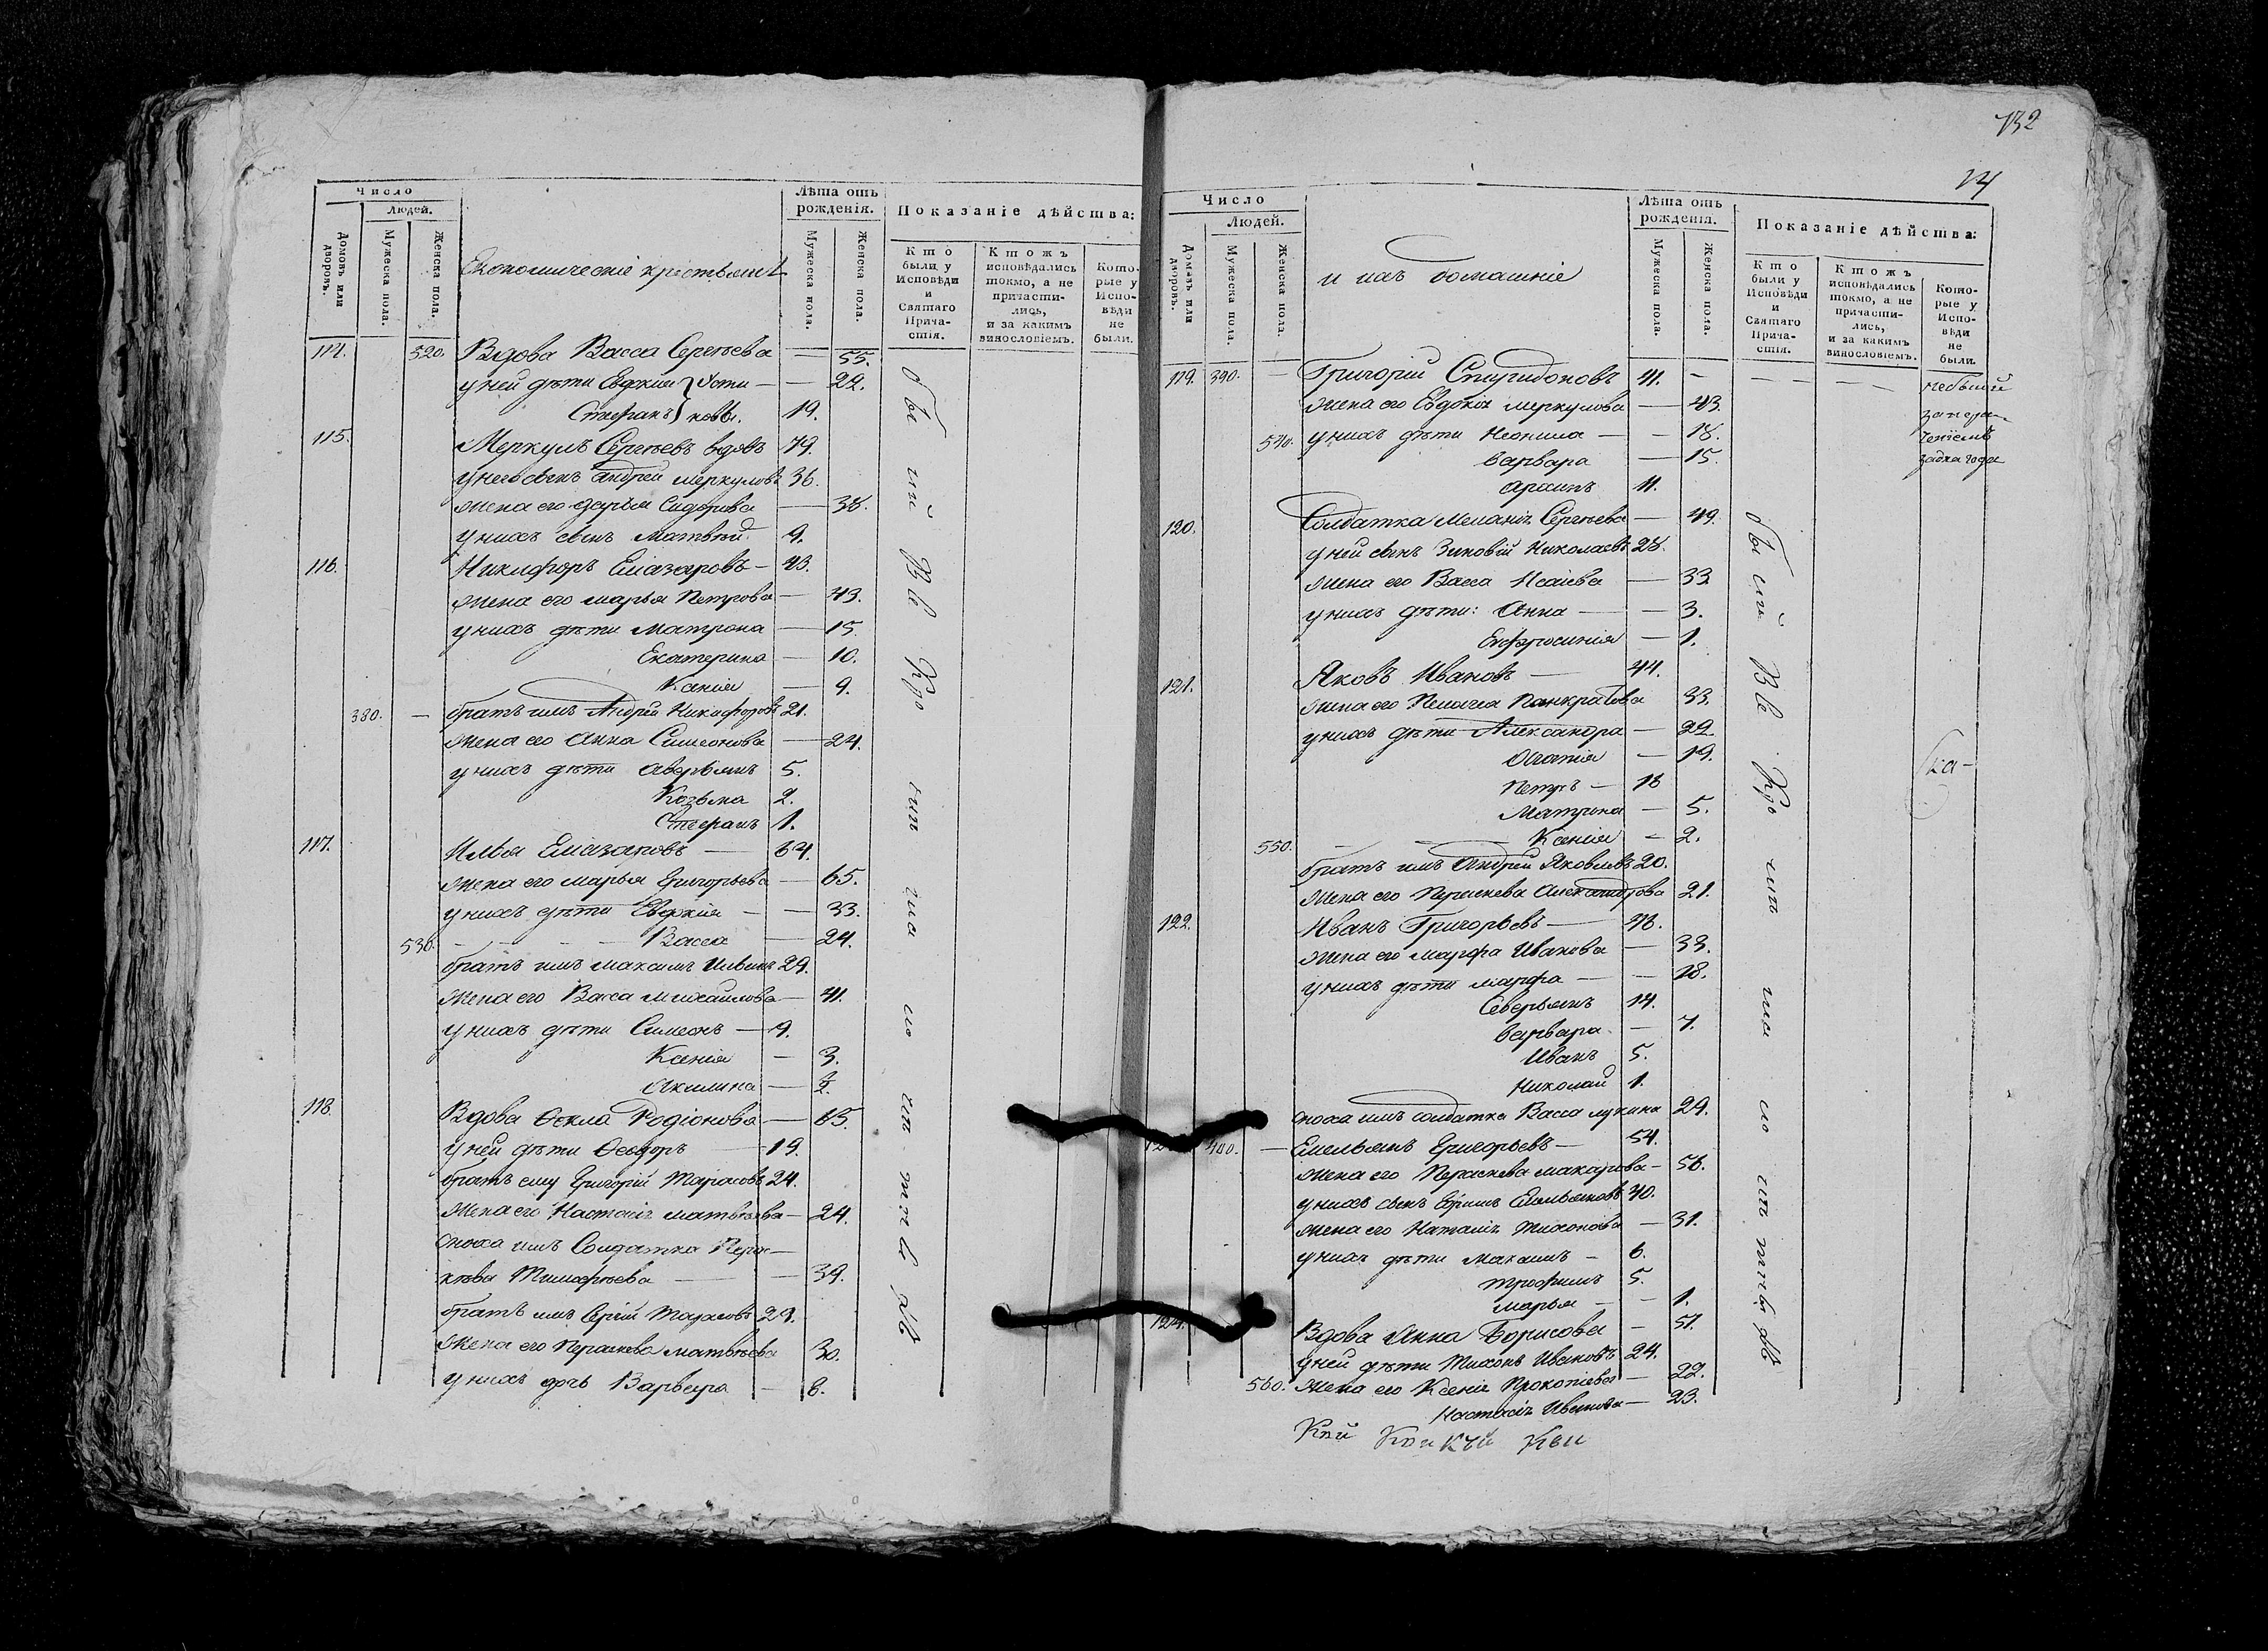 132
14
Число
Людей.
Домовъ или дворовъ.
Мужеска пола.
Женска пола.
Економическіе крестьянѣ
Лѣта отъ рожденія.
Мужеска пола.
Женска пола.
Показаніе дѣйства:
Кто были у Исповѣди и Святаго Причастія.
Ктожъ исповѣдались токмо, а не причастились, и за какимъ винословіемъ.
Которые у Исповѣди не были.
114. 520. Вдова Васса Сергѣева — 55.
у ней дѣти Евдокия } Усти — — 24.
Стефанъ } новы. 19.
115. Меркулъ Сергѣевъ вдовъ 79.
у него сынъ Андрей Меркуловъ 36.
жена его Дарья Сидорова — 38.
у нихъ сынъ Матвѣй 9.
116. Никифоръ Елазаровъ — 43.
жена его Марья Петрова — 43.
у нихъ дѣти Матрона — 15.
Екатерина — 10.
Ксения — 9.
380. — братъ имъ Андрей Никифоровъ 21.
жена его Анна Симеонова — 24.
у нихъ дѣти Аверьянъ 5.
Козьма 2.
Стефанъ 1.
117. Илья Елазаровъ — 64.
жена его Марья Григорьева — 65.
у нихъ дѣти Евдокия — — 33.
530. — — — Васса — 24.
братъ имъ Максимъ Ильинъ 29.
жена его Васса Михайлова — 41.
у нихъ дѣти Симеонъ — 9.
Ксения — 3.
Акилина —
118. Вдова Ѳекла Родіонова — 65.
у ней дѣти Ѳеодоръ — 19.
братъ ему Григорій Тарасовъ 24.
жена его Настасія Матвѣева — 24.
сноха имъ Солдатка Параскева
Тимофѣева — — 39.
братъ имъ Сергій Тарасовъ 29.
жена его Параскева Матвѣева 30.
у нихъ дочь Варвара — 8.
Число
Людей.
Домовъ или дворовъ.
Мужеска пола.
Женска пола.
и ихъ домашніе
Лѣта отъ рожденія.
Мужеска пола.
Женска пола.
Показаніе дѣйства:
Кто были у Исповѣди и Святаго Причастія.
Ктожъ исповѣдались токмо, а не причастились, и за какимъ винословіемъ.
Которые у Исповѣди не были.
119. 390. — Григорій Спиридоновъ 41. —
жена его Евдокія Меркулова — 43.
540. у нихъ дѣти Неонила — — 18.
Варвара — 15.
Архипъ 11.
120. Солдатка Меланія Сергѣева — 49.
у ней сынъ Зиновій Николаевъ 28.
жена его Васса Исаіева — 33
у нихъ дѣти: Анна — — 3.
Ефросиния — 1.
121. Яковъ Ивановъ — 44.
жена его Пелагея Панкратова 33.
у нихъ дѣти Александра — 22.
Агапия — 19.
Петръ — 18
Матрона — 5.
550. — — — Ксения — 2.
братъ имъ Андрей Яковлевъ 20.
жена его Параскева Александрова 21.
122. Иванъ Григорьевъ — 48.
жена его Марфа Иванова — 33.
у нихъ дѣти Марфа — — 18.
Северьянъ 14.
Варвара — 7.
Иванъ 5.
Николай 1.
сноха имъ солдатка Васса Лукина 29.
400. — Емельянъ Григорьевъ — 54.
жена его Параскева Макарова — 56.
у нихъ сынъ Ефимъ Емельяновъ 40.
жена его Наталія Тихонова — 31.
у нихъ дѣти Максимъ — 6.
Трофимъ 5.
Марья — — 1.
124. Вдова Анна Борисова — 51.
у ней дѣти Тихонъ Ивановъ 24.
560. жена его Ксенія Прокопіева — 22.
Настасія Иванова — 23.